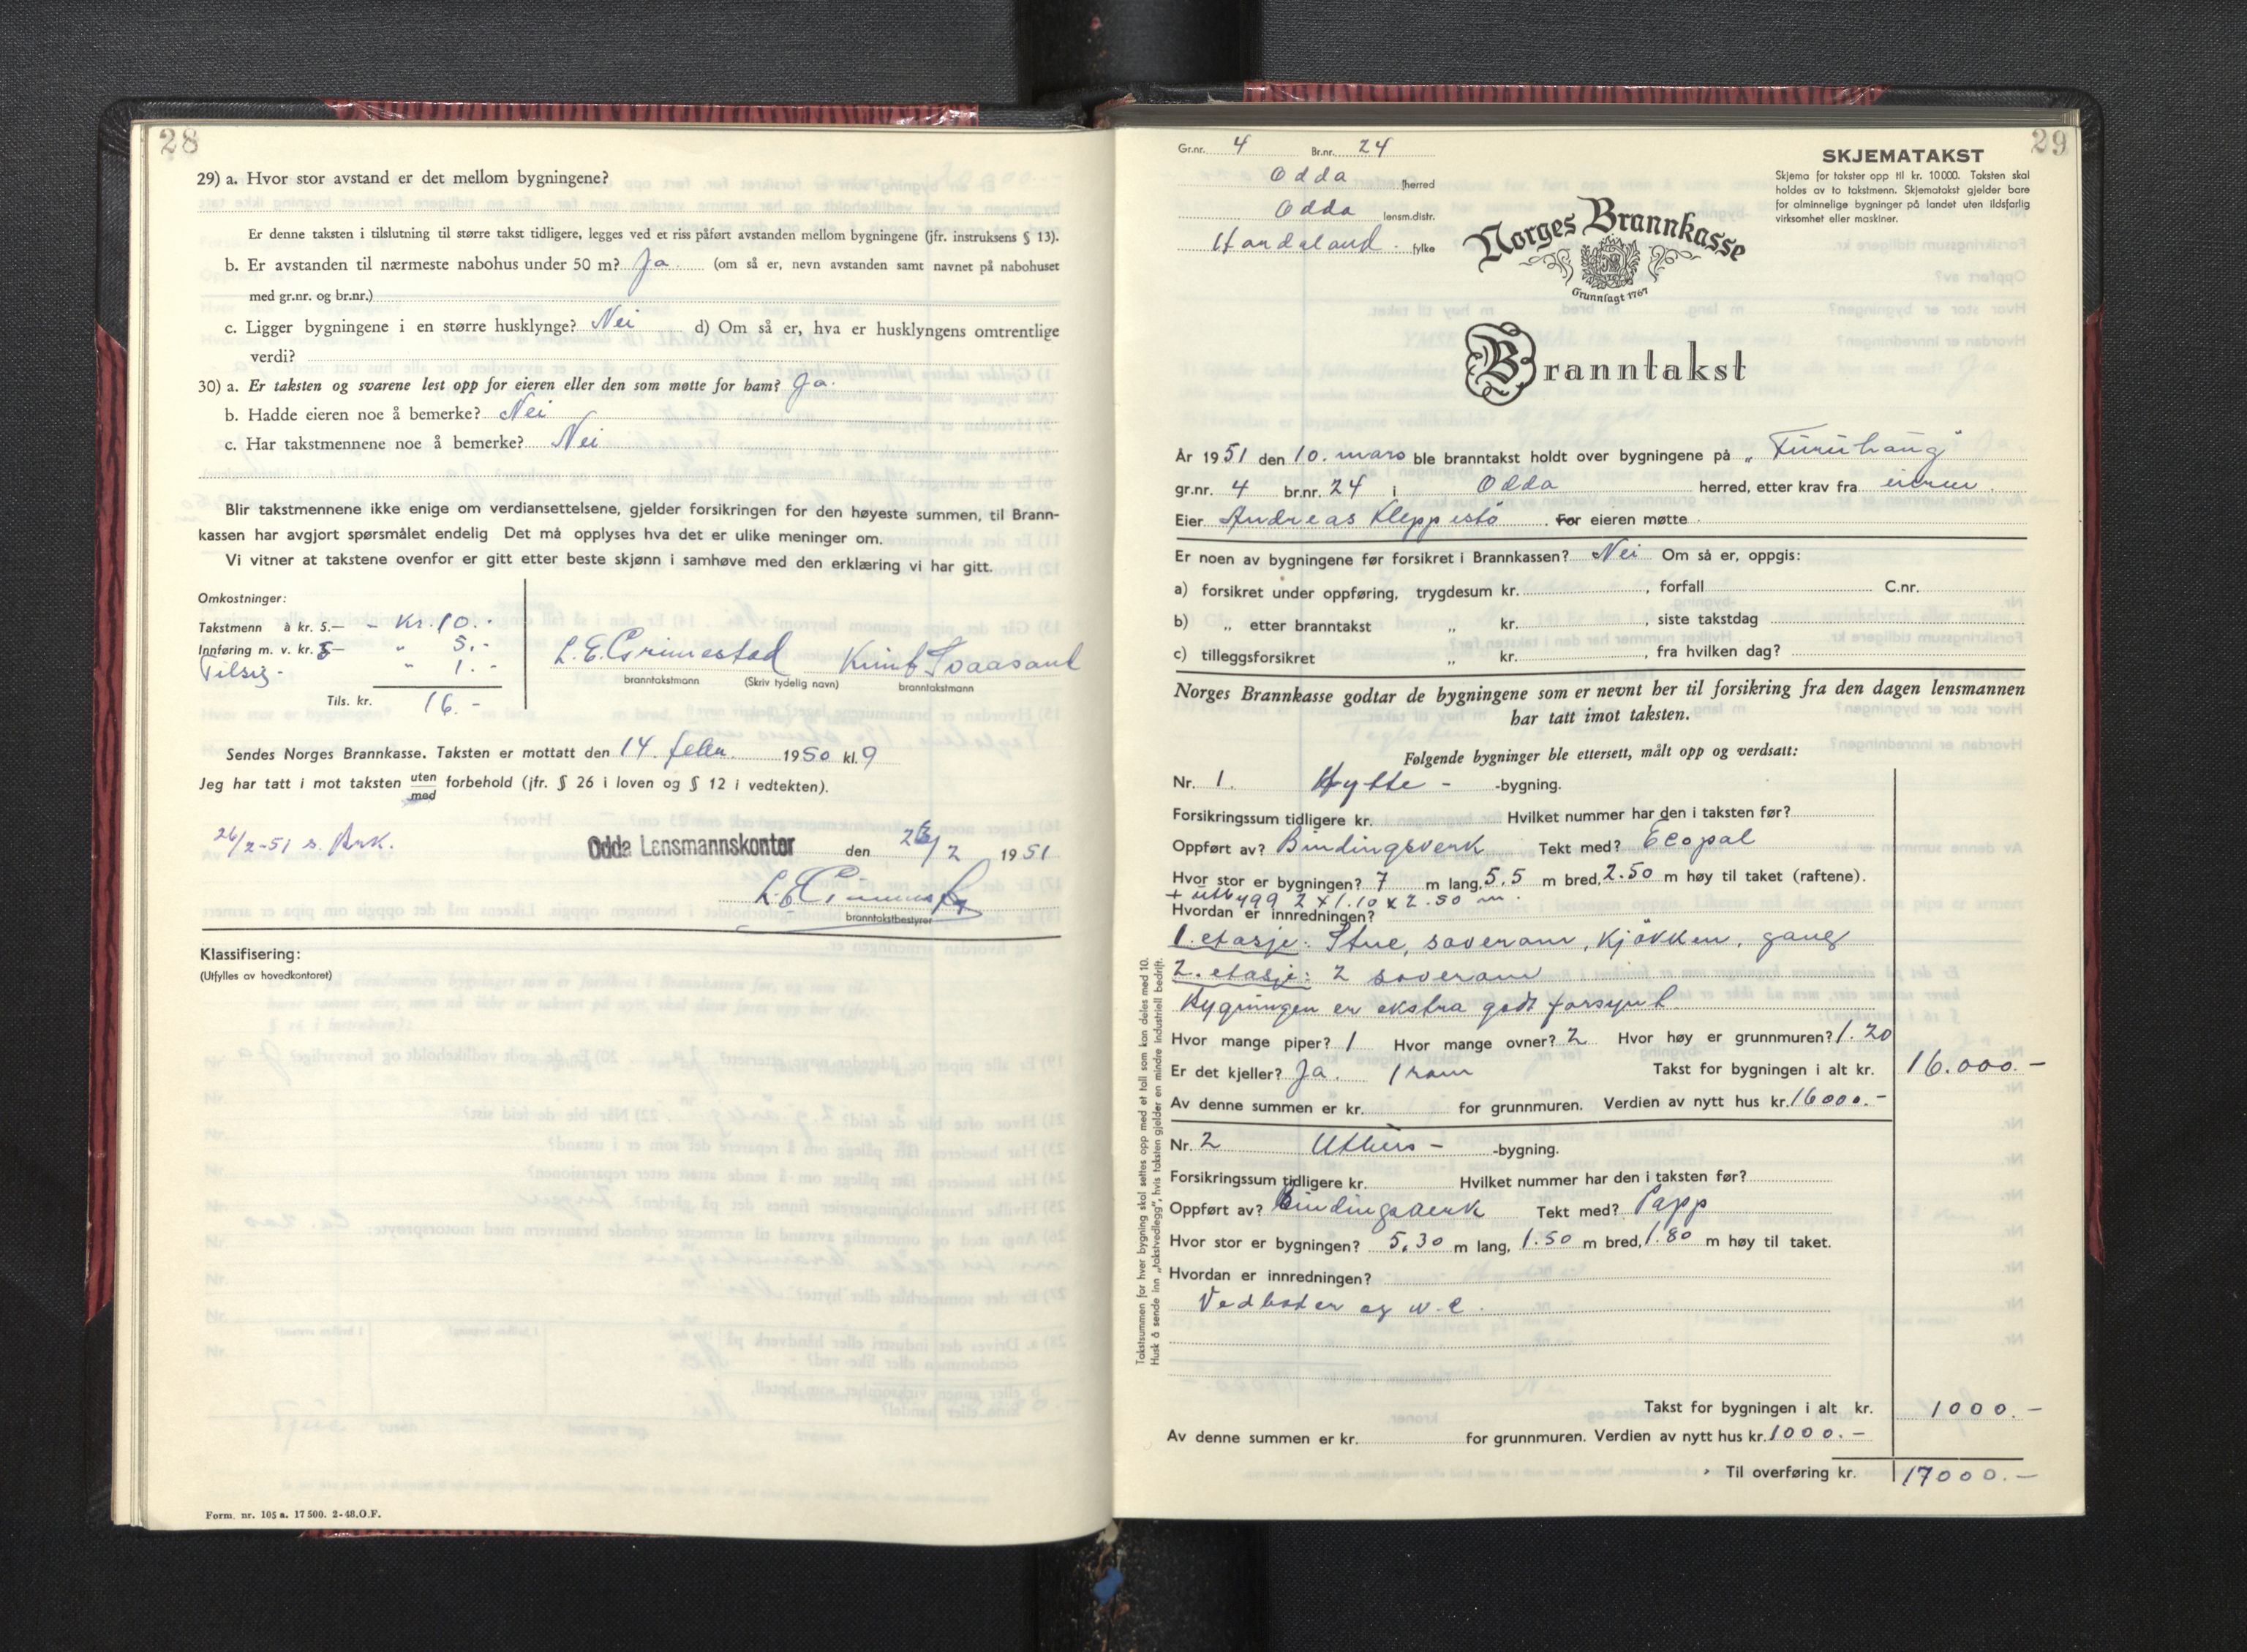 28
29) a. Hvor stor avstand er det mellom bygningene?
Er denne taksten i tilslutning til større takst tidligere, legges ved et riss påført avstanden mellom bygningene (jfr. instruksens § 13).
b. Er avstanden til nærmeste nabohus under 50 m? Ja. (om så er, nevn avstanden samt navnet på nabohuset
med gr.nr. og br.nr.)
c. Ligger bygningene i en større husklynge? Nei d) Om så er, hva er husklyngens omtrentlige
verdi?
30) a. Er taksten og svarene lest opp for eieren eller den som møtte for ham? Ja.
b. Hadde eieren noe å bemerke? Nei
c. Har takstmennene noe å bemerke? Nei
Blir takstmennene ikke enige om verdiansettelsene, gjelder forsikringen for den høyeste summen, til Brann-
kassen har avgjort spørsmålet endelig Det må opplyses hva det er ulike meninger om.
Vi vitner at takstene ovenfor er gitt etter beste skjønn i samhøve med den erklæring vi har gitt.
Omkostninger:
Takstmenn à kr. 5.— - Kr. 10.-
Innføring m. v. kr. 5— " 5.-
Tilsig- " 1.-
Tils. kr. 16.-
L. E. Grimestad Knut Tvaasand
branntakstmann (Skriv tydelig navn) branntakstmann
Sendes Norges Brannkasse. Taksten er mottatt den 14. febr. 1950 kl. 9
Jeg har tatt i mot taksten uten forbehold (jfr. § 26 i loven og § 12 i vedtekten).
med
26/2-51 s. Brk.
Odda Lensmannskontor den 26/2 1951
branntakstbestyrer
Klassifisering:
(Utfylles av hovedkontoret)
Form. nr. 105 a. 17 500. 2-48.O.F.
29
Gr.nr. 4 Br.nr. 24
Odda herred
Odda lensm.distr.
Hordaland. fylke
SKJEMATAKST
Skjema for takster opp til kr. 10000. Taksten skal
holdes av to takstmenn. Skjematakst gjelder bare
for alminnelige bygninger på landet uten ildsfarlig
virksomhet eller maskiner.
Norges Brannkasse
Grunnlagt 1767
Branntakst
År 1951 den 10. mars ble branntakst holdt over bygningene på „Furuhaug"
gr.nr. 4 br.nr. 24 i Odda herred, etter krav fra eieren.
Eier Andreas Kleppestø. For eieren møtte
Er noen av bygningene før forsikret i Brannkassen? Nei Om så er, oppgis:
a) forsikret under oppføring, trygdesum kr. , forfall C.nr.
b) „ etter branntakst „ kr. , siste takstdag
c) tilleggsforsikret „ kr. , fra hvilken dag?
Norges Brannkasse godtar de bygningene som er nevnt her til forsikring fra den dagen lensmannen
har tatt imot taksten.
Følgende bygninger ble ettersett, målt opp og verdsatt:
Nr. 1. Hytte - -bygning.
Forsikringssum tidligere kr. Hvilket nummer har den i taksten før?
Oppført av? Bindingsverk Tekt med? Ecopal
Hvor stor er bygningen? 7 m lang, 5,5 m bred, 2.50 m høy til taket (raftene).
+ utbygg 2 x 1.10 x 2.50 m.
Hvordan er innredningen?
1. etasje: Stue, soverom, kjøkken, gang
2. etasje: 2 soverom
Bygningen er ekstra godt forsynt.
Hvor mange piper? 1 Hvor mange ovner? 2 Hvor høy er grunnmuren? 1.20
Er det kjeller? Ja. 1 rom Takst for bygningen i alt kr. 16.000.-
Av denne summen er kr. for grunnmuren. Verdien av nytt hus kr. 16000.-
Nr. 2 Uthus - -bygning.
Forsikringssum tidligere kr. Hvilket nummer har den i taksten før?
Oppført av? Bindingsverk Tekt med? Papp
Hvor stor er bygningen? 5,30 m lang, 1.50 m bred, 1.80 m høy til taket.
Hvordan er innredningen?
Vedboder og w.c.
Takst for bygningen i alt kr. 1000.-
Av denne summen er kr. for grunnmuren. Verdien av nytt hus kr. 1000.-
Til overføring kr. 17000.-
Takstsummen for hver bygning skal settes opp med et tall som kan deles med 10.
Husk å sende inn „takstvedlegg", hvis taksten gjelder en mindre industriell bedrift.